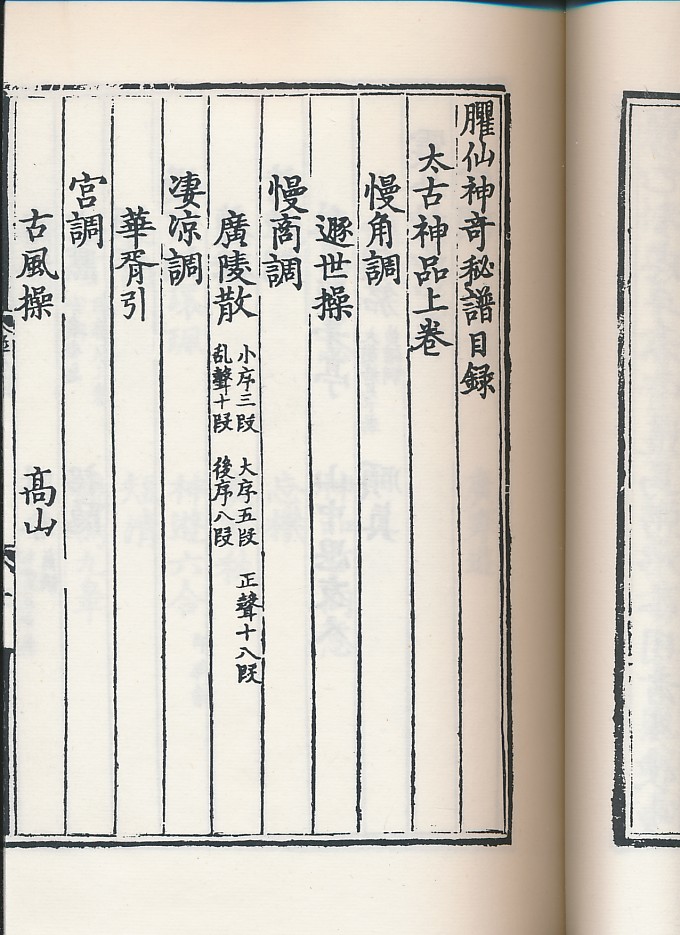 臞仙神奇秘譜目録
太古神品上卷
慢角調
遯世操
慢商調
廣陵散 小序三段 大序五段 正聲十八段
乱聲十段 後序八段
凄凉調
華胥引
宮調
古風操 高山